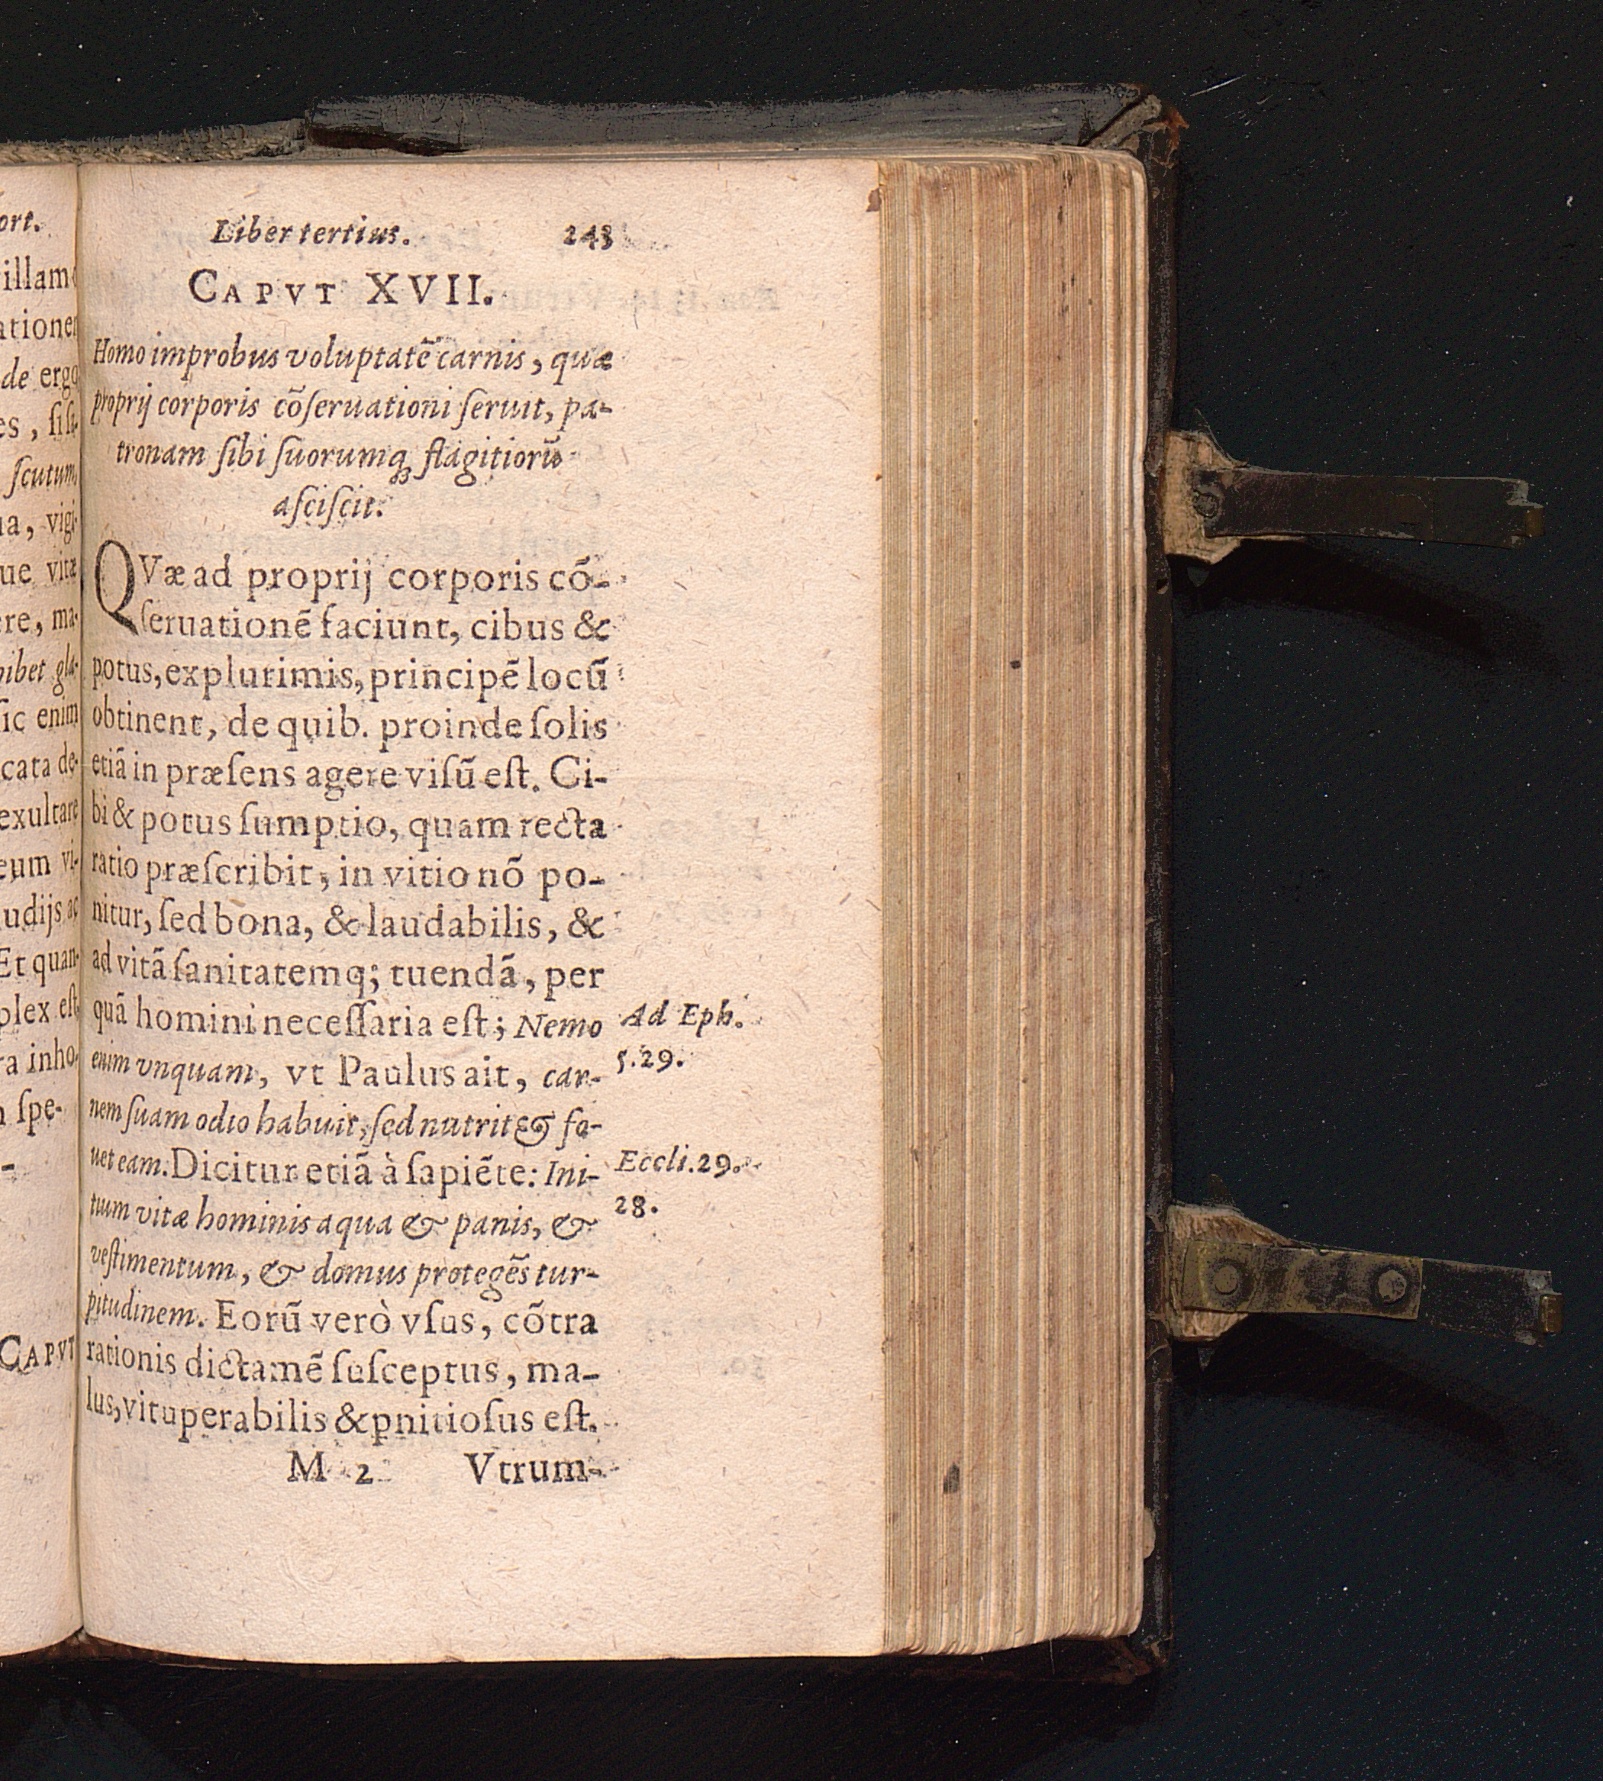 ort.
illam
ationem
de ergo
es, siſt
ſcutum,
ua, vigi-
ue vitæ
ere, ma-
hibet gla-
ſic enim
cata de-
exultare
eum vi-
udijs ac
Et quan-
plex eſt
ra inho-
ſpe-
CAPVT
Liber tertius. 243
CAPVT XVII.
Homo improbus voluptatẽ carnis, quæ
proprij corporis cõſeruationi ſeruit, pa-
tronam ſibi ſuorumq; flagitiorũ
aſciſcit.
QVæ ad proprij corporis cõ-
ſeruationẽ faciunt, cibus &
potus, ex plurimis, principẽ locũ
obtinent, de quib. proinde ſolis
etiã in præſens agere viſũ eſt. Ci-
bi & potus ſumptio, quam recta
ratio præſcribit, in vitio nõ po-
nitur, ſed bona, & laudabilis, &
ad vitã ſanitatemq; tuendã, per
quã homini neceſſaria eſt; Nemo
enim vnquam, vt Paulus ait, car-
nem ſuam odio habuit, ſed nutrit & fo-
uet eam. Dicitur etiã à ſapiẽte: Ini-
tium vitæ hominis aqua & panis, &
veſtimentum, & domus protegẽs tur-
pitudinem. Eorũ verò vſus, cõtra
rationis dictamẽ ſuſceptus, ma-
lus, vituperabilis & ꝑnitioſus eſt.
M 2 Vtrum-
Ad Eph.
5.29.
Eccli.29.
28.